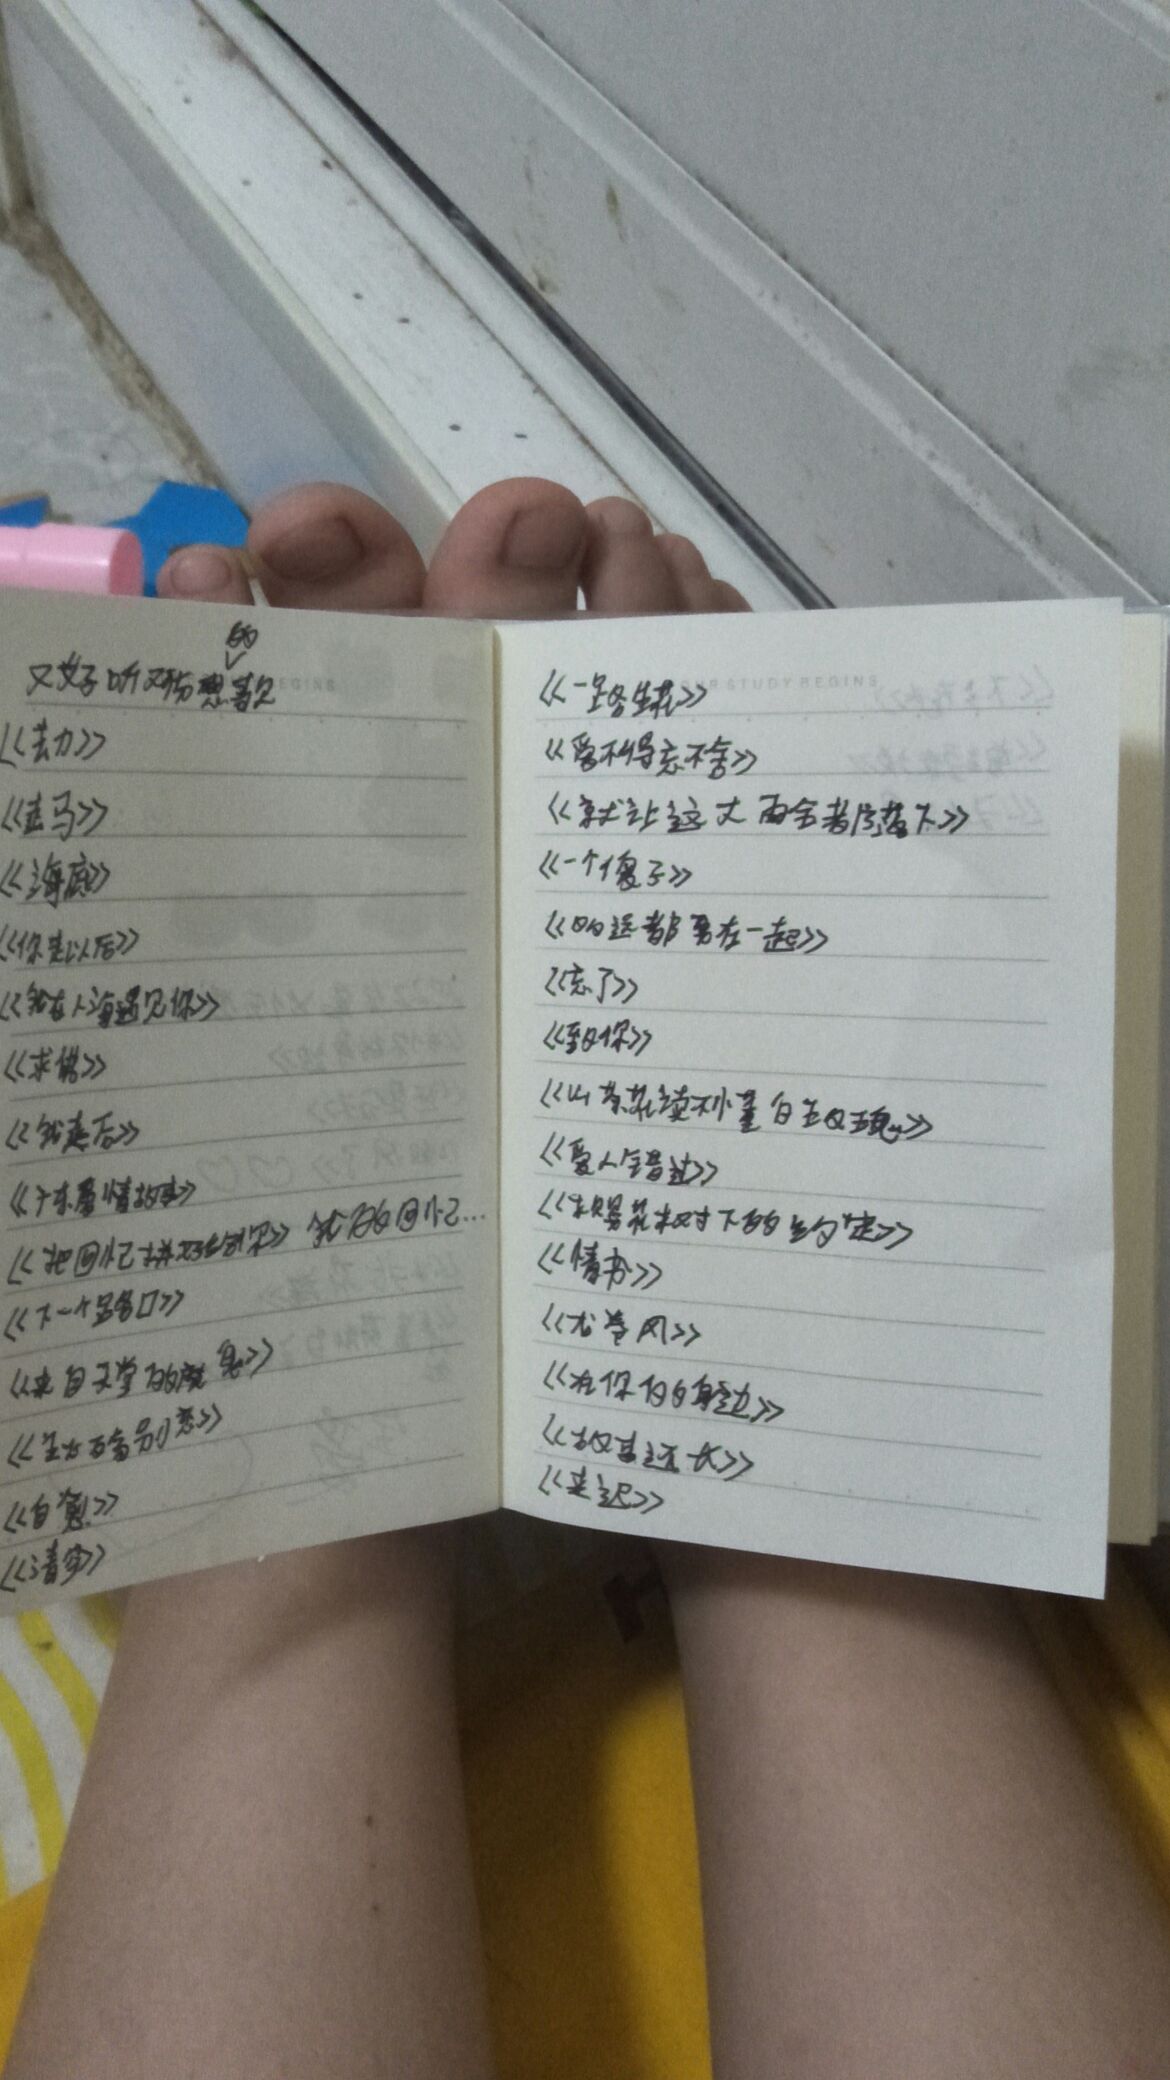 的
又好听又伤想歌
EGINS
《芒力》
《走马》
《海底》
《你走以后》
《我在人海遇见你》
《求佛》
《我走后》
《广东爱情故事》
《把回忆拼好给你》 我的回忆...
《下一个路口》
《来自天堂的魔鬼》
《生如百舍别恋》
《自愈》
《清空》
OUR STUDY BEGINS
《一路生花》
《爱不得忘不舍》
《就让这大雨全都落下》
《一个傻子》
《永远都要在一起》
《忘了》
《到你》
《山茶花读不懂白玫瑰》
《爱人错过》
《樱花树下的约定》
《情书》
《龙卷风》
《在你的身边》
《故事还长》
《来迟》